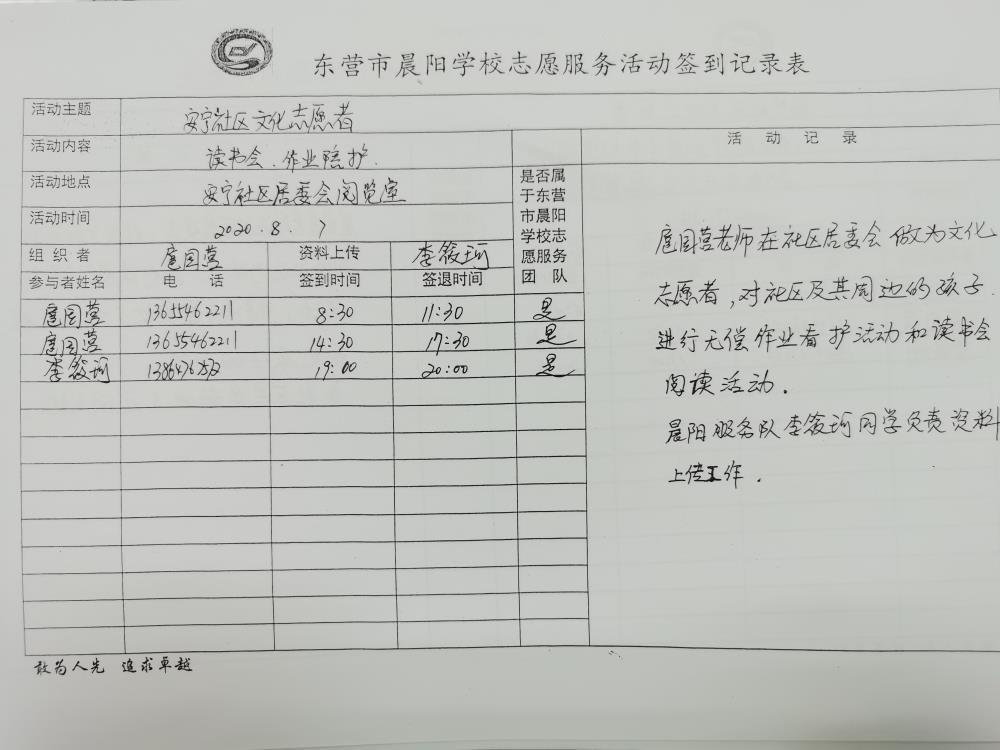 东营市晨阳学校志愿服务活动签到记录表
活动主题 安宁社区文化志愿者
活动内容 读书会、作业陪护.
活动地点 安宁社区居委会阅览室
活动时间 2020.8.7
组织者 扈园营 资料上传 李筱珂
是否属于东营市晨阳学校志愿服务团队
参与者姓名 电话 签到时间 签退时间
扈园营 13655462211 8:30 11:30 是
扈园营 13655462211 14:30 17:30 是
李筱珂 19:00 20:00 是
活动记录
扈园营老师在社区居委会做为文化
志愿者,对社区及其周边的孩子
进行无偿作业看护活动和读书会
阅读活动.
晨阳服务队李筱珂同学负责资料
上传工作.
敢为人先 追求卓越